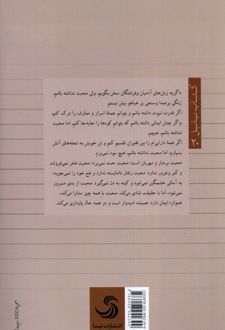 کتاب نیستا ۲۰
«اگر به زبان‌های آدمیان و فرشتگان سخن بگویم، ولی محبت نداشته باشم،
زنگی پرصدا و سنجی پر هیاهو بیش نیستم.
اگر قدرت نبوت داشته باشم و بتوانم جملهٔ اسرار و معارف را درک کنم،
و اگر چنان ایمانی داشته باشم که بتوانم کوه‌ها را جابه‌جا کنم، اما محبت
نداشته باشم، هیچم.
اگر همهٔ دارایی‌ام را بین فقیران تقسیم کنم و تن خویش به شعله‌های آتش
بسپارم، اما محبت نداشته باشم، هیچ سود نمی‌برم.
محبت بردبار و مهربان است؛ محبت حسد نمی‌برد؛ محبت فخر نمی‌فروشد
و کبر و غرور ندارد. محبت رفتار ناشایسته ندارد و نفع خود را نمی‌جوید؛
به آسانی خشمگین نمی‌شود و کینه به دل نمی‌گیرد؛ محبت از بدی مسرور
نمی‌شود، اما با حقیقت شادی می‌کند. محبت با همه چیز مدارا می‌کند،
همواره ایمان دارد، همیشه امیدوار است و در همه حال پایداری می‌کند.
انتشارات نیستا